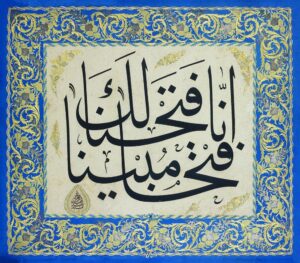 إنا فتحنا لك
فتحا مبينا